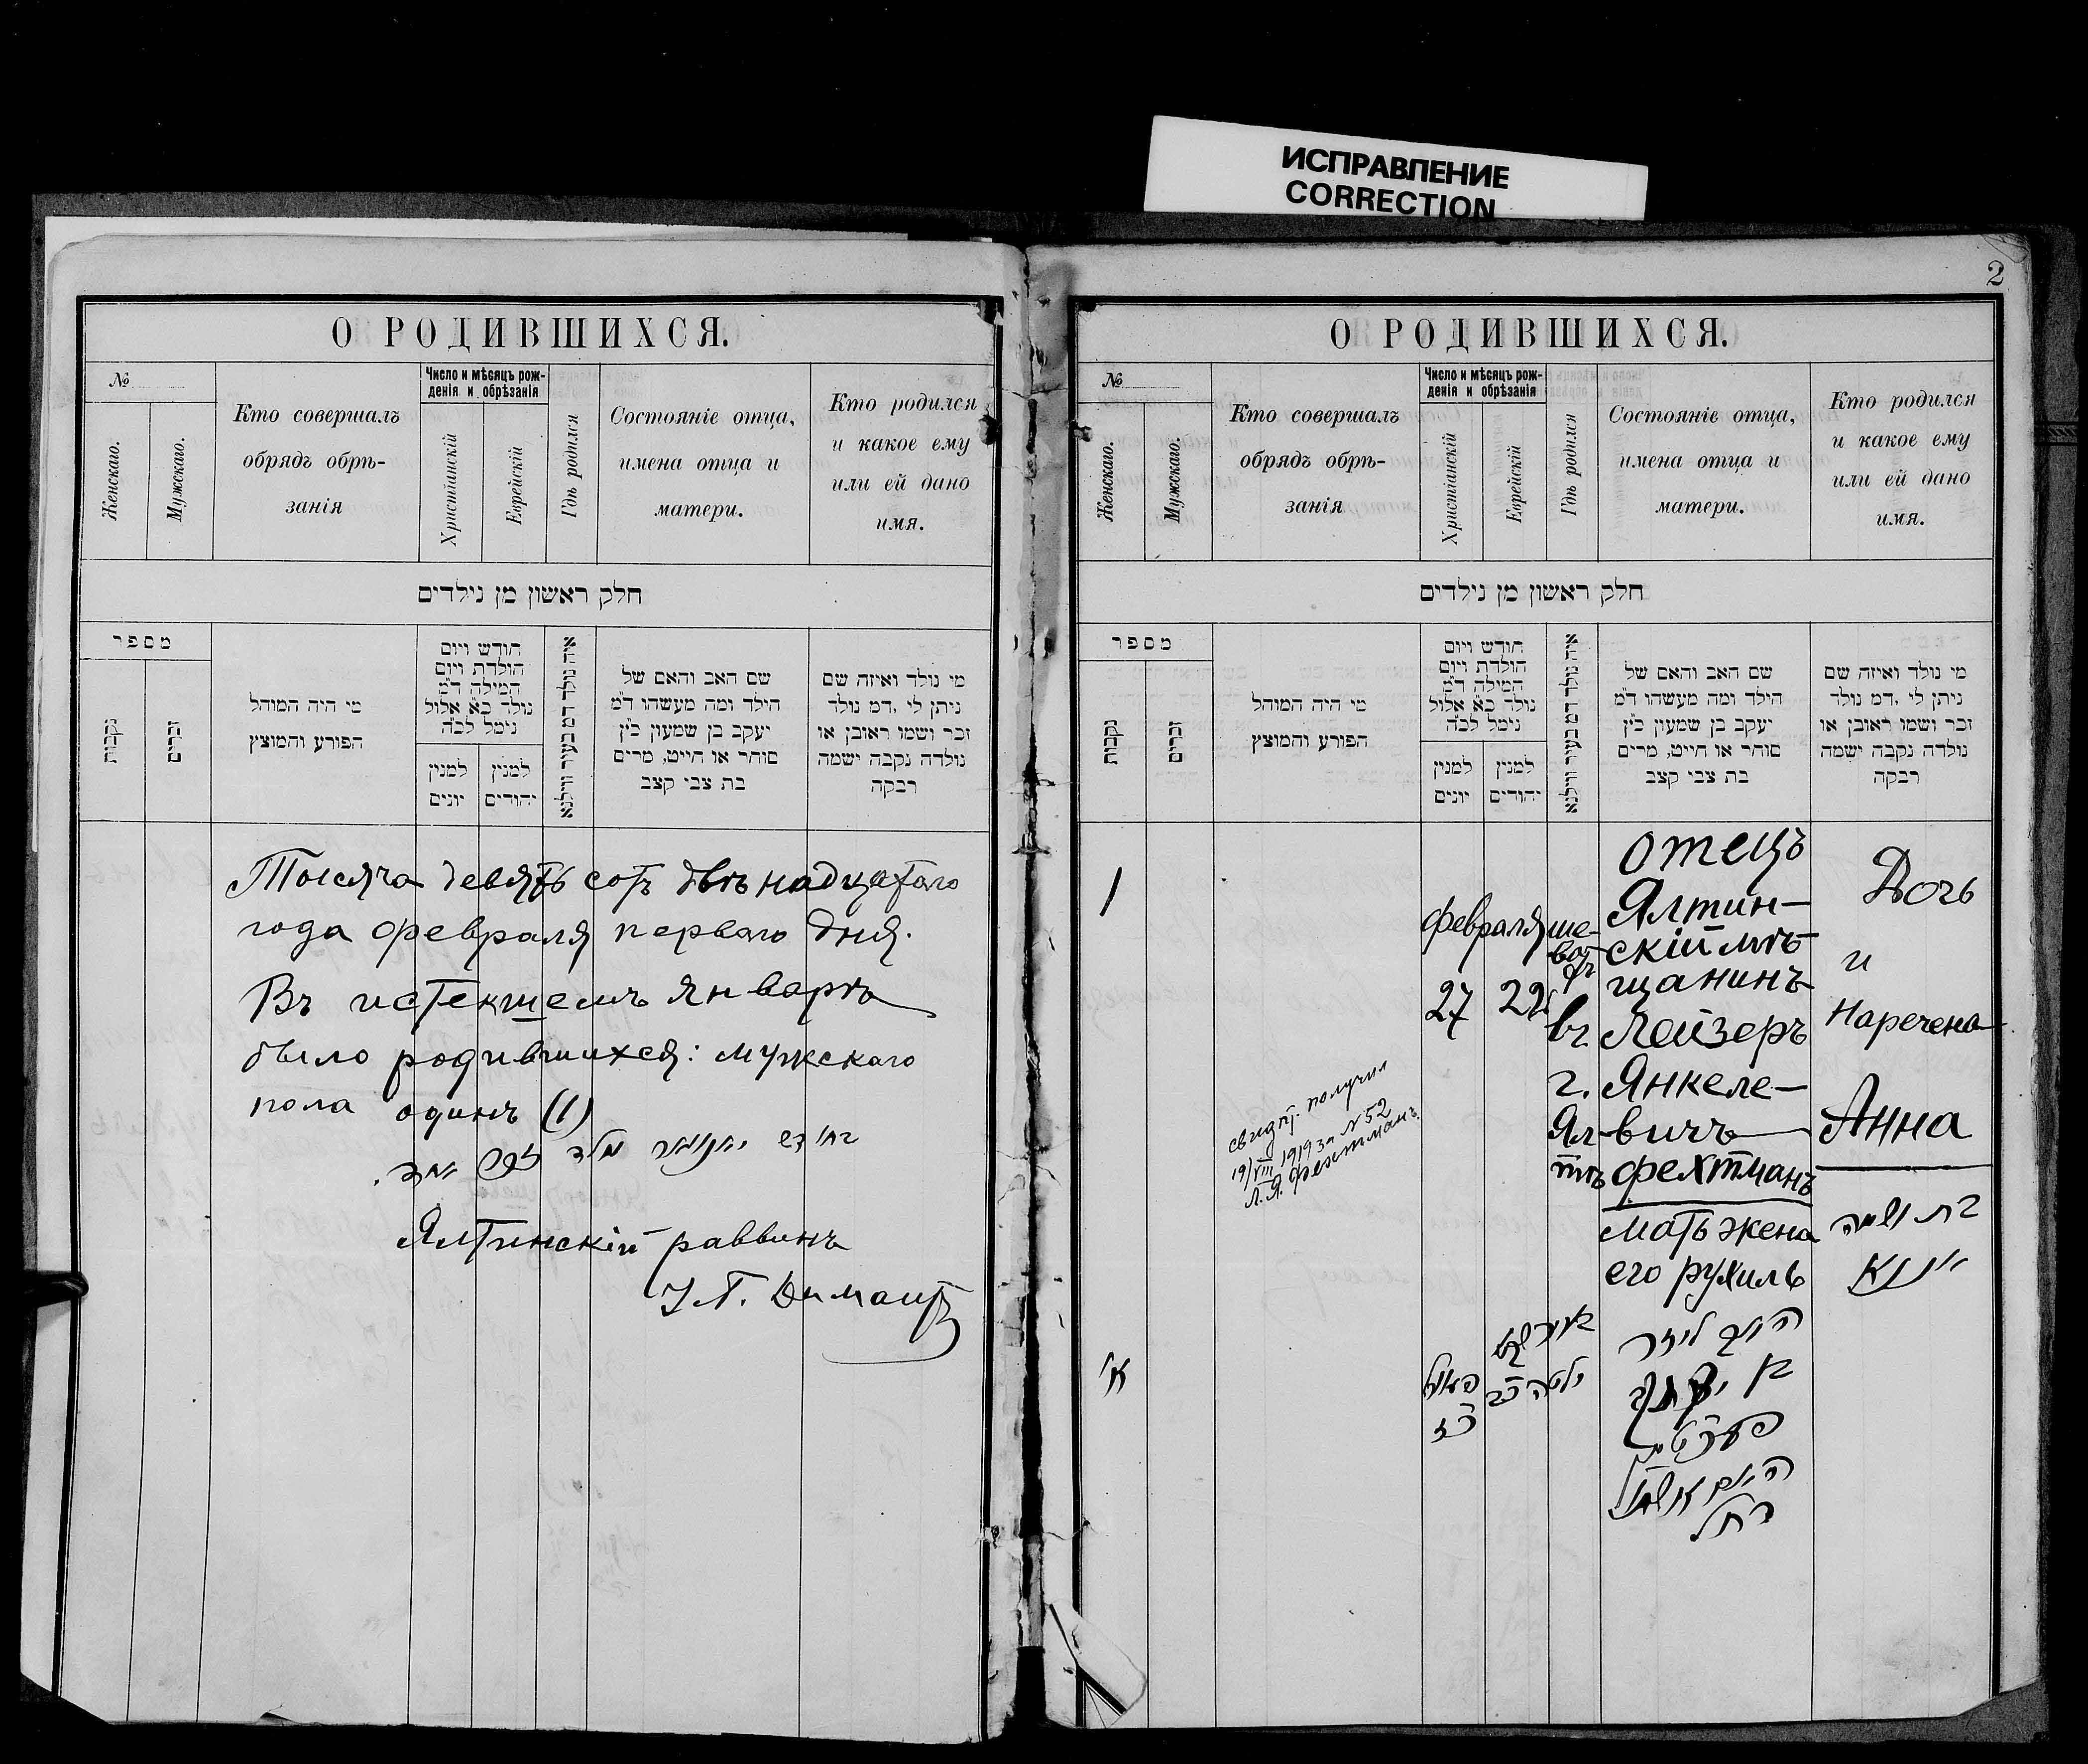 ИСПРАВЛЕНИЕ
CORRECTION
О РОДИВШИХСЯ.
№
Женскаго.
Мужскаго.
Кто совершалъ
обрядъ обрѣ-
занія
Число и мѣсяцъ рож-
денія и обрѣзанія
Христіанскій
Еврейскій
Гдѣ родился
Состояніе отца,
имена отца и
матери.
Кто родился
и какое ему
или ей дано
имя.
חלק ראשון מן נילדים
מספר
נקבות
זכרים
מי היה המוהל
הפורע והמוצץ
חודש ויום
הולדת ויום
המילה ד״מ
נולד כ״א אלול
נימל לכ״ה
למנין
יונים
למנין
יהודים
איה נולד דמ בעיר ווילנא
שם האב והאם של
הילד ומה מעשהו ד״מ
יעקב בן שמעון כ״ץ
סוחר או חייט, מרים
בת צבי קצב
מי נולד ואיזה שם
ניתן לי ,דמ נולד
זכר ושמו ראובן או
נולדה נקבה ישמה
רבקה
Тысяча девять сотъ двѣнадцатаго
года февраля перваго дня.
Въ истекшемъ январѣ
было родившихся: мужскаго
пола одинъ (1)
Ялтинскій раввинъ
2
О РОДИВШИХСЯ.
№
Женскаго.
Мужскаго.
Кто совершалъ
обрядъ обрѣ-
занія
Число и мѣсяцъ рож-
денія и обрѣзанія
Христіанскій
Еврейскій
Гдѣ родился
Состояніе отца,
имена отца и
матери.
Кто родился
и какое ему
или ей дано
имя.
חלק ראשון מן נילדים
מספר
נקבות
זכרים
מי היה המוהל
הפורע והמוצץ
חודש ויום
הולדת ויום
המילה ד״מ
נולד כ״א אלול
נימל לכ״ה
למנין
יונים
למנין
יהודים
איה נולד דמ בעיר ווילנא
שם האב והאם של
הילד ומה מעשהו ד״מ
יעקב בן שמעון כ״ץ
סוחר או חייט, מרים
בת צבי קצב
מי נולד ואיזה שם
ניתן לי ,דמ נולד
זכר ושמו ראובן או
נולדה נקבה ישמה
רבקה
1
свидѣт. получил
19/VIII 1919 за N 52
Л. Я. Фехтманъ
февраля
27
29
въ
г.
Ял-
тѣ
отецъ
Ялтин-
скій мѣ-
щанинъ
Лейзеръ
Янкеле-
вичъ
Фехтманъ
мать жена
его Рухиль
Дочь
и
наречена
Анна
בת ושמה
א
כ״ז
האב ליזר
בן יעקב
רחל